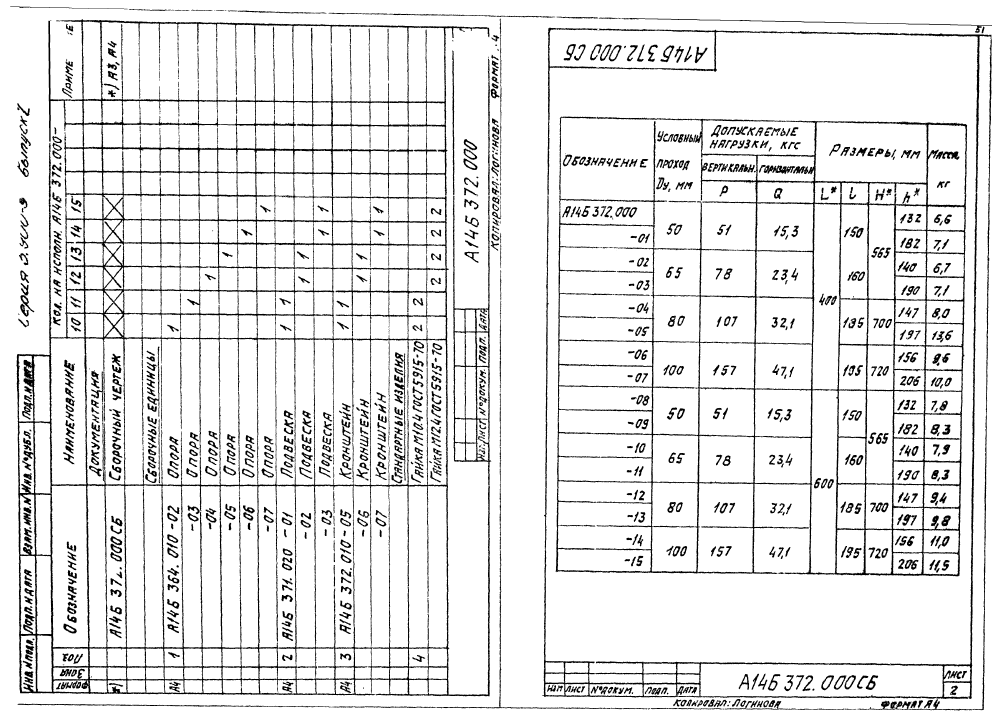 Серия 5.900-9 Выпуск 2
Обозначение Наименование Кол. на исполн. А14Б 372.000- Приме
Формат Зона Поз. 10 11 12 13 14 15
Документация
*) А14Б 372.000СБ Сборочный чертеж *) А3, А4
Сборочные единицы
А4 1 А14Б 364.010-02 Опора 1
-03 Опора 1
-04 Опора 1
-05 Опора 1
-06 Опора 1
-07 Опора 1
А4 2 А14Б 371.020-01 Подвеска 1 1
-02 Подвеска 1 1
-03 Подвеска 1 1
А4 3 А14Б 372.010-05 Кронштейн 1 1
-06 Кронштейн 1 1
-07 Кронштейн 1 1
Стандартные изделия
4 Гайка М10.4 ГОСТ 5915-70 2 2
Гайка М12.4 ГОСТ 5915-70 2 2 2 2
Инв.№подл. Подп.и дата Взам.инв.№ Инв.№дубл. Подп.и дата
Изм. Лист №докум. Подп. Дата
А14Б 372.000
Копировал: Логинова Формат 4
51
А14Б 372.000 СБ
Обозначение Условный проход Dу, мм Допускаемые нагрузки, кгс Размеры, мм Масса, кг
Вертикальн. P Горизонтальн Q L* l H* h*
А14Б 372.000 50 51 15,3 400 150 565 132 6,6
-01 182 7,1
-02 65 78 23,4 160 140 6,7
-03 190 7,1
-04 80 107 32,1 185 700 147 8,0
-05 197 13,6
-06 100 157 47,1 195 720 156 9,6
-07 206 10,0
-08 50 51 15,3 600 150 565 132 7,8
-09 182 8,3
-10 65 78 23,4 160 140 7,9
-11 190 8,3
-12 80 107 32,1 185 700 147 9,4
-13 197 9,8
-14 100 157 47,1 195 720 156 11,0
-15 206 11,5
Изм Лист №докум. Подп. Дата
А14Б 372.000СБ
Лист
2
Копировал: Логинова Формат А4